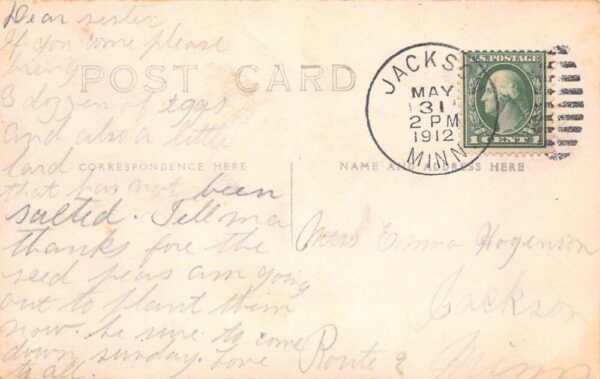 Dear sister
If you come please
bring
3 dozzen of eggs
and also a little
lard
that has not been
salted. Tell ma
thanks fore the
seed peas am going
out to plant them
now. be sure to come
down sunday. Love
to all.
POST CARD
CORRESPONDENCE HERE
NAME AND ADDRESS HERE
JACKS
MAY
31
2 PM
1912
MINN
U.S. POSTAGE
1 CENT 1
Miss Emma Hogenson
Jackson
Route 2 Minn